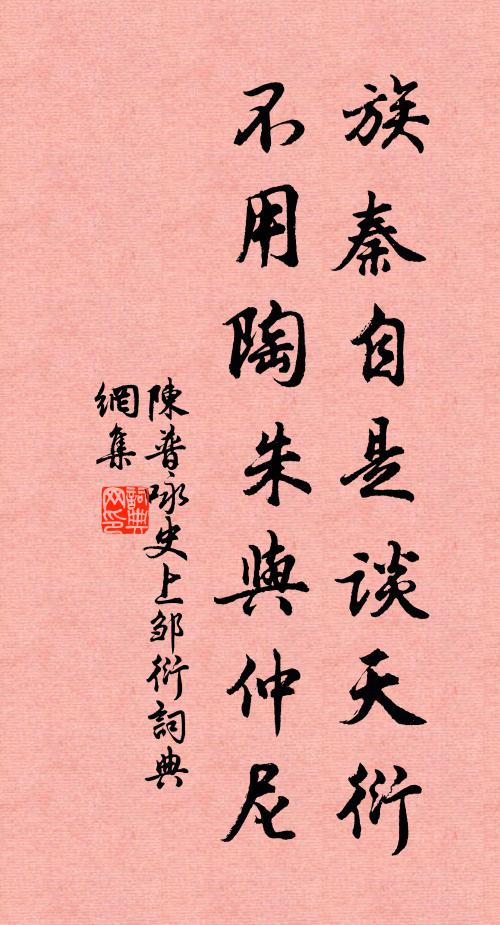 族秦自是談天衍
不用陶朱與仲尼
陳普咏史上邹衍詞典
網集
詞典
网印